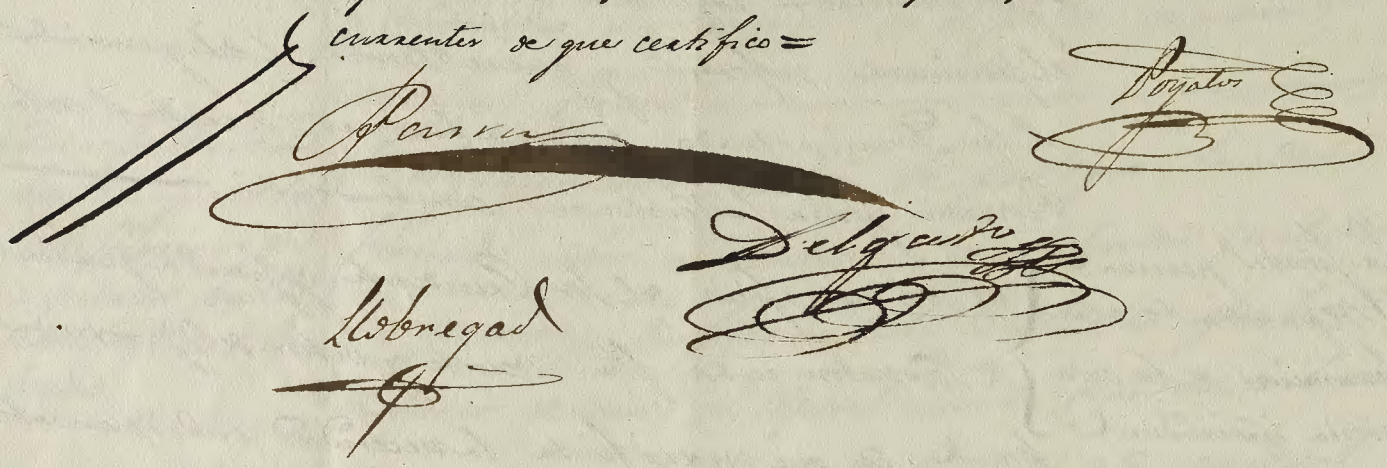 currentes de que certifico =
Parra
Poyatos
Delgado
Llobregad